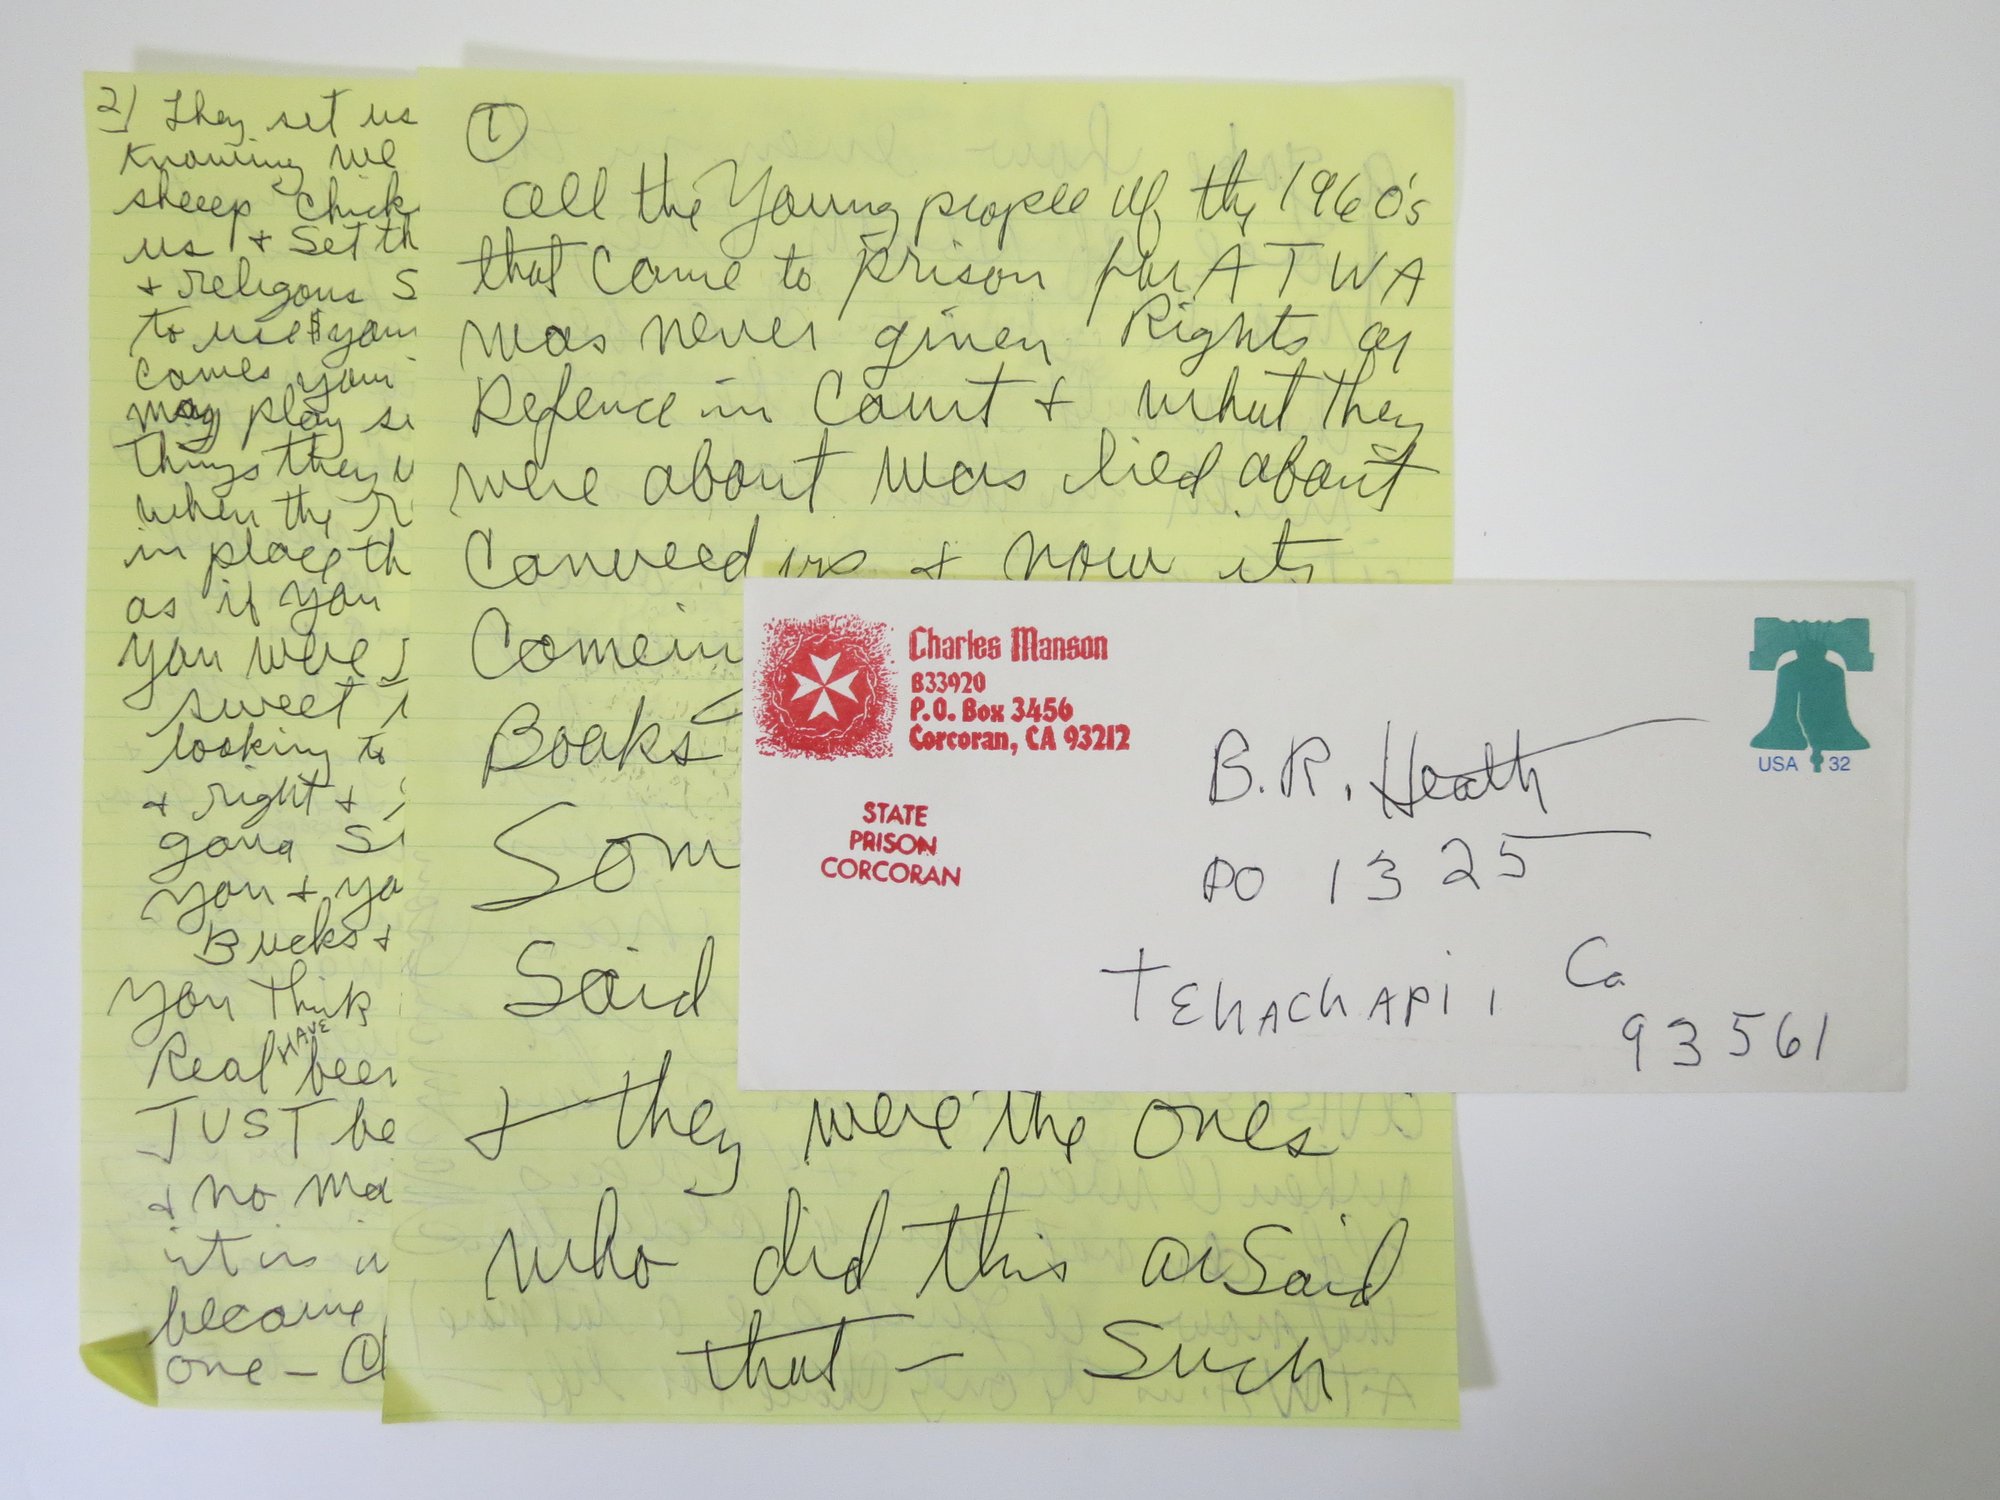 2) They set us
Knowing we
sheeep chick
us + Set th
+ religous S
to use $ your
comes your
may play s
things they w
when the r
in place th
as if you
you were
sweet
looking to
+ right +
gona S
you + yo
Bucks +
you think
Real HAVE been
JUST be
+ no ma
it is
become
one — C
1
All the Young people of the 1960's
that come to prison for ATWA
was never given Rights or
Defence in Court + what they
were about was lied about
Conveed up + now its
Comein
Books
Som
Said
+ they were the ones
who did this or Said
that — Such
Charles Manson
B33920
P.O. Box 3456
Corcoran, CA 93212
STATE
PRISON
CORCORAN
USA 32
B.R. Heath
PO 1325
TEHACHAPI, Ca
93561